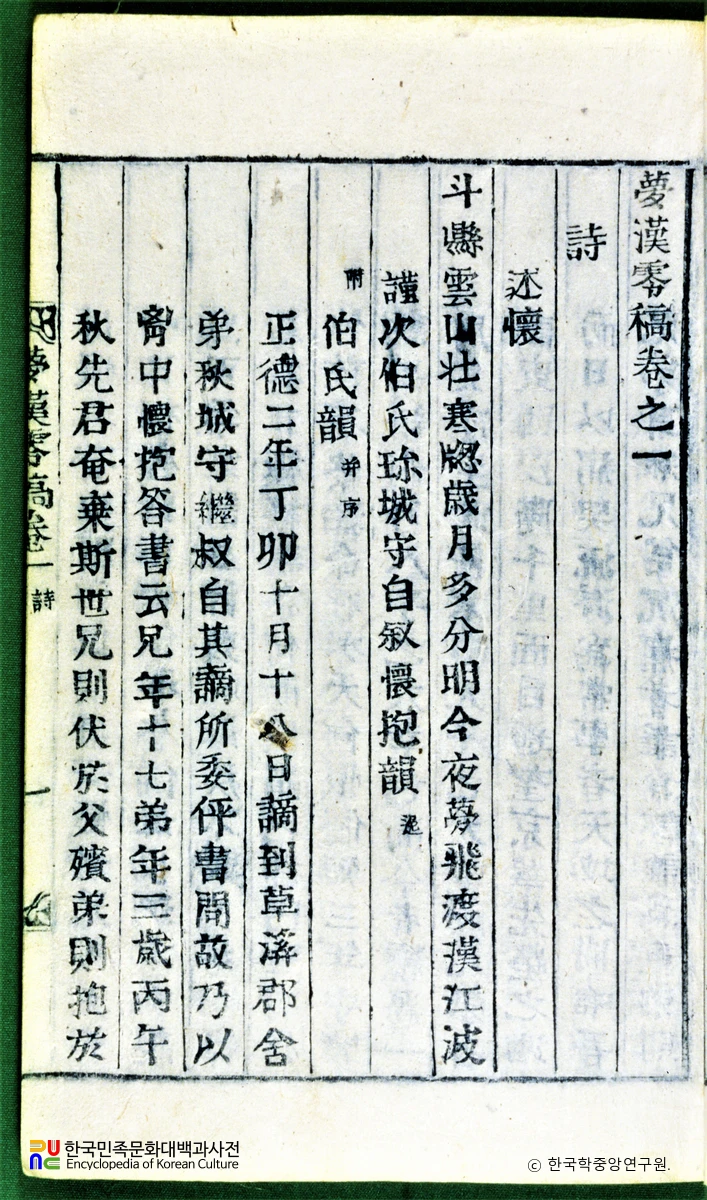 夢漢零稿卷之一
詩
述懷
斗縣雲山壯寒牕歲月多分明今夜夢飛渡漢江波
謹次伯氏珎城守自叙懷抱韻 逸
附伯氏韻 并序
正德二年丁卯十月十八日謫到草溪郡舍
弟秋城守繼叔自其謫所委伻書問故乃以
胷中懷抱答書云兄年十七弟年三歲丙午
秋先君奄棄斯世兄則伏於父殯弟則抱於
夢漢零稿卷一 詩 一
한국민족문화대백과사전
Encyclopedia of Korean Culture
ⓒ 한국학중앙연구원.